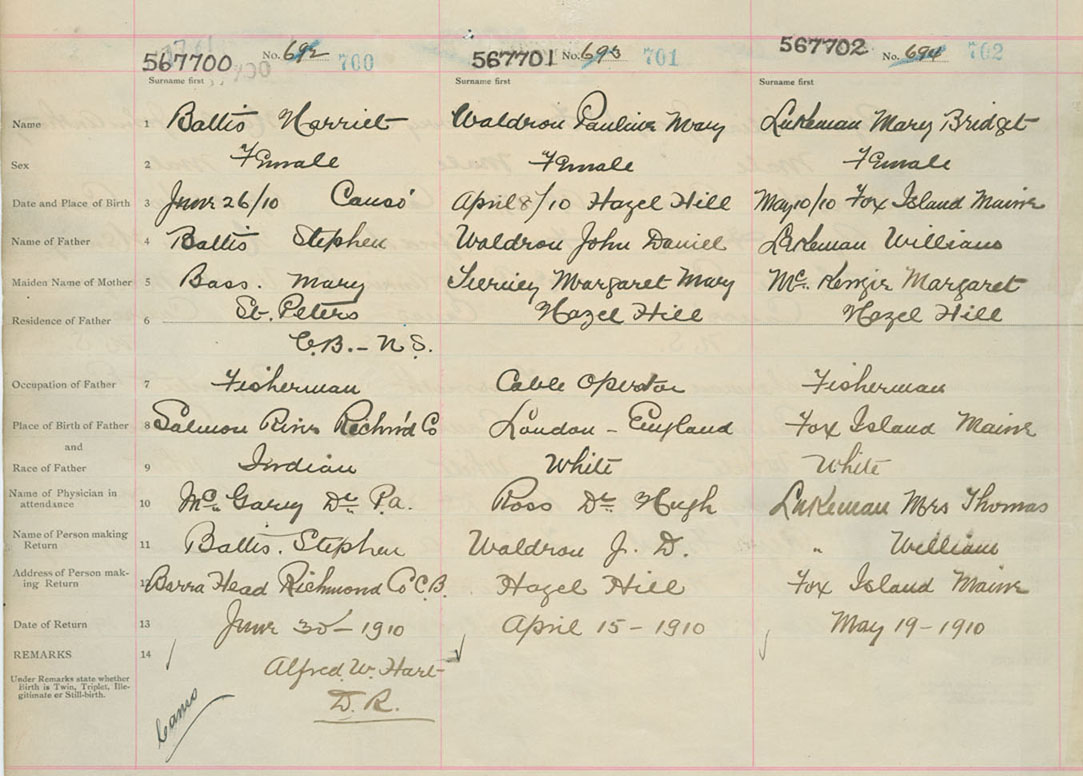 567700 No. 692 700 567701 No. 693 701 567702 No. 694 702
Surname first Surname first Surname first
Name 1 Battis Harriet Waldron Pauline Mary Lukeman Mary Bridget
Sex 2 Female Female Female
Date and Place of Birth 3 June 26/10 Canso April 8/10 Hazel Hill May 10/10 Fox Island Maine
Name of Father 4 Battis Stephen Waldron John Daniel Lukeman William
Maiden Name of Mother 5 Bass. Mary Tierney Margaret Mary Mc. Kenzie Margaret
Residence of Father 6 St. Peters Hazel Hill Hazel Hill
C.B. - N.S.
Occupation of Father 7 Fisherman Cable Operator Fisherman
Place of Birth of Father 8 Salmon River Richm'd Co London - England Fox Island Maine
and
Race of Father 9 Indian White White
Name of Physician in
attendance 10 Mc. Garry Dr. P.a. Ross Dr. Hugh Lukeman Mrs Thomas
Name of Person making
Return 11 Battis. Stephen Waldron J. D. " William
Address of Person mak-
ing Return 12 Barra Head Richmond Co C.B. Hazel Hill Fox Island Maine
Date of Return 13 June 30 - 1910 April 15 - 1910 May 19 - 1910
REMARKS 14
Alfred. W. Hart
Under Remarks state whether
Birth is Twin, Triplet, Ille-
gitimate or Still-birth.
D. R.
Canso